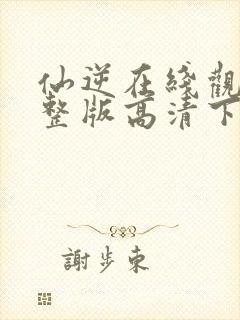 仙逆在綫觀
整版高清下
謝步東